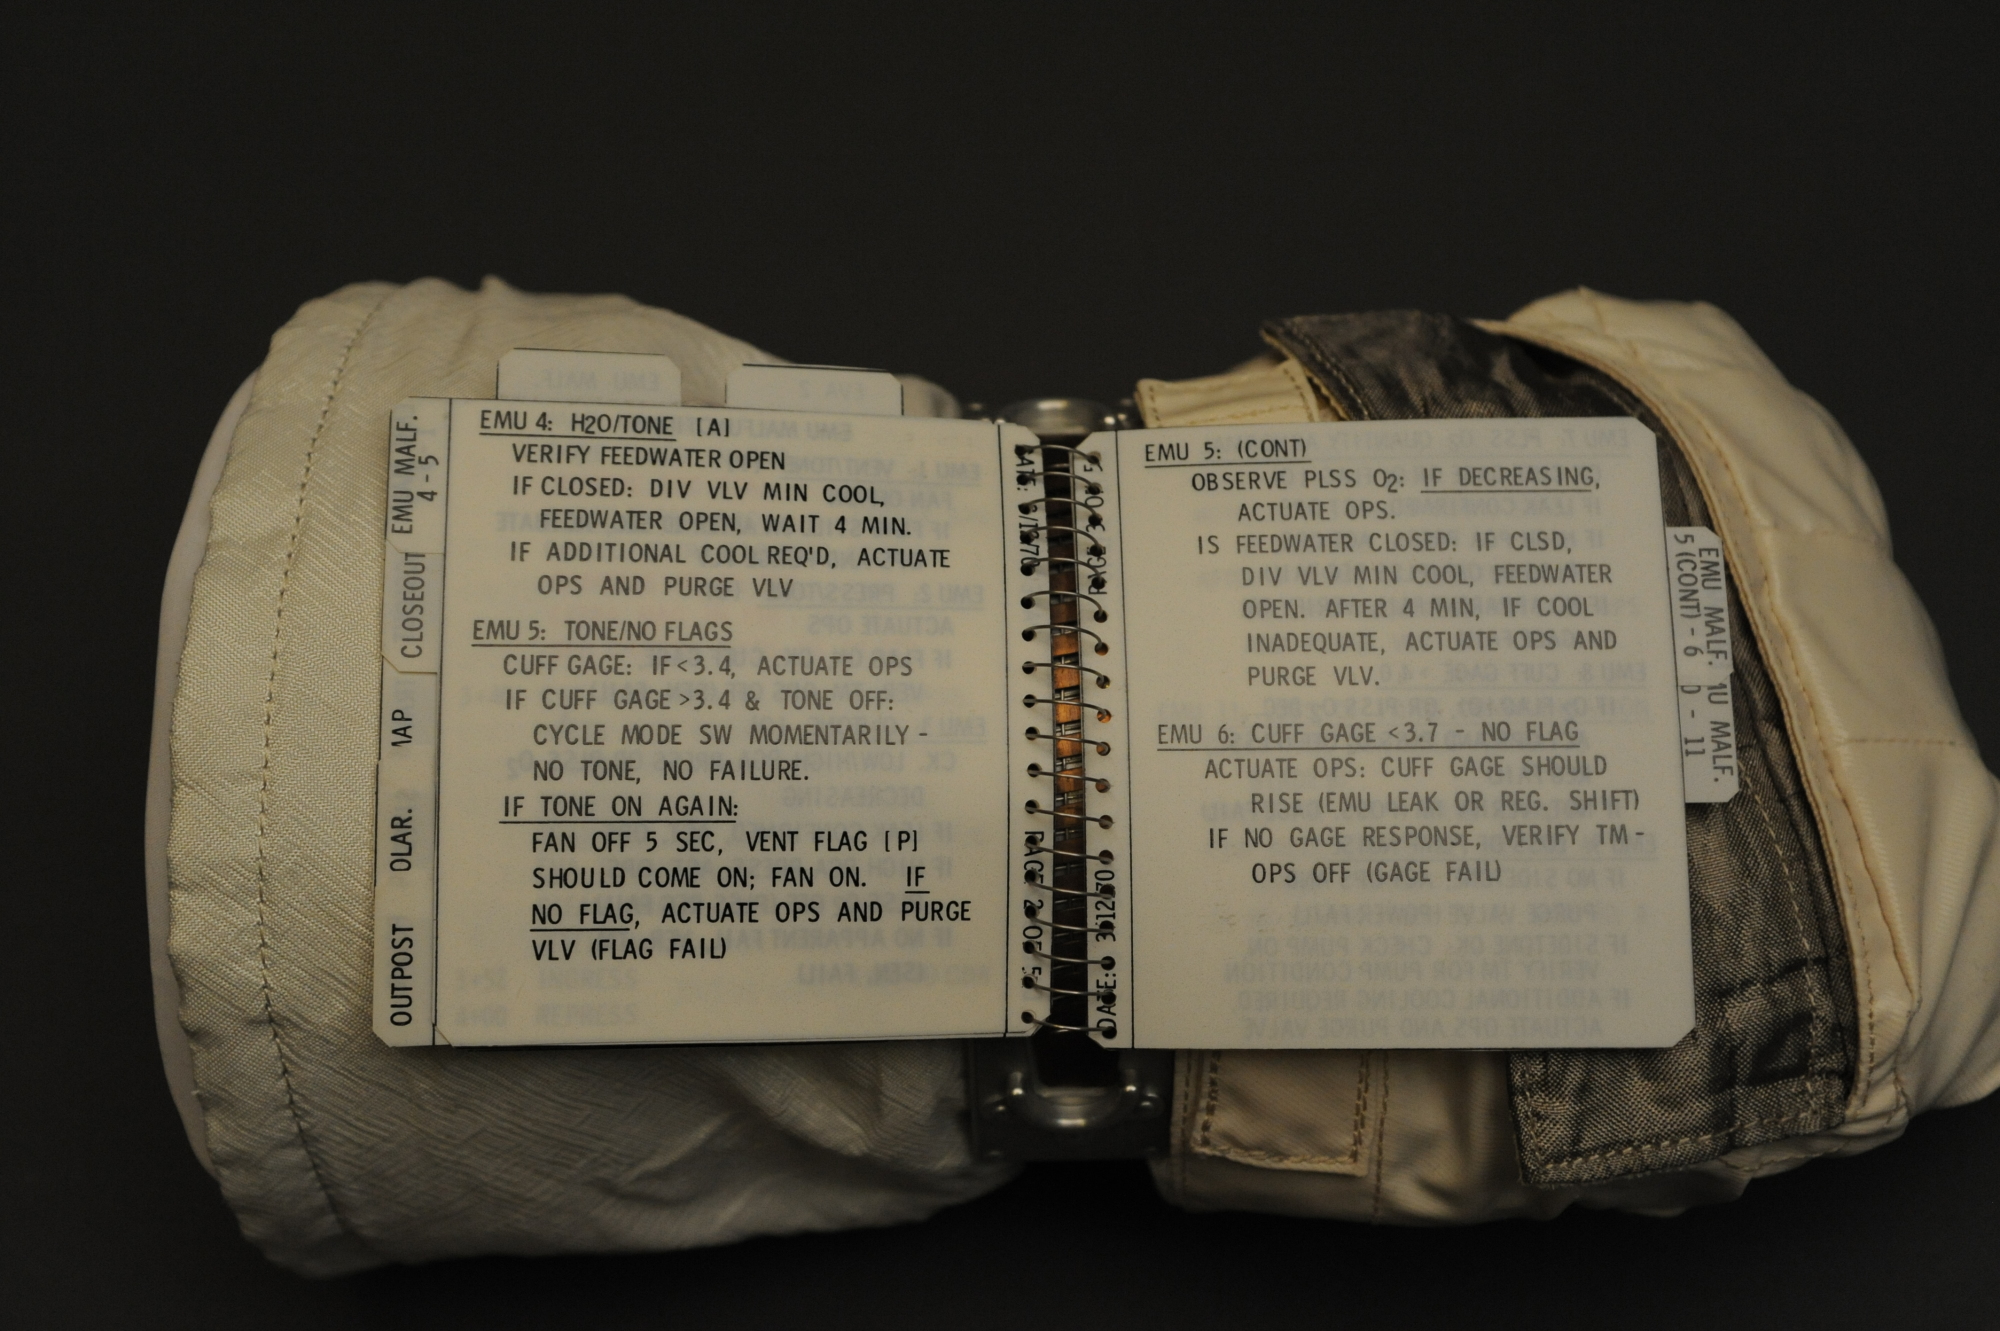 EMU MALF.
4 - 5
CLOSEOUT
OUTPOST
EMU 4: H2O/TONE [A]
VERIFY FEEDWATER OPEN
IF CLOSED: DIV VLV MIN COOL,
FEEDWATER OPEN, WAIT 4 MIN.
IF ADDITIONAL COOL REQ'D, ACTUATE
OPS AND PURGE VLV
EMU 5: TONE/NO FLAGS
CUFF GAGE: IF <3.4, ACTUATE OPS
IF CUFF GAGE >3.4 & TONE OFF:
CYCLE MODE SW MOMENTARILY -
NO TONE, NO FAILURE.
IF TONE ON AGAIN:
FAN OFF 5 SEC, VENT FLAG [P]
SHOULD COME ON; FAN ON. IF
NO FLAG, ACTUATE OPS AND PURGE
VLV (FLAG FAIL)
PAGE 2 OF 5
PAGE 3 OF 5
DATE:
EMU 5: (CONT)
OBSERVE PLSS O2: IF DECREASING,
ACTUATE OPS.
IS FEEDWATER CLOSED: IF CLSD,
DIV VLV MIN COOL, FEEDWATER
OPEN. AFTER 4 MIN, IF COOL
INADEQUATE, ACTUATE OPS AND
PURGE VLV.
EMU 6: CUFF GAGE <3.7 - NO FLAG
ACTUATE OPS: CUFF GAGE SHOULD
RISE (EMU LEAK OR REG. SHIFT)
IF NO GAGE RESPONSE, VERIFY TM -
OPS OFF (GAGE FAIL)
EMU MALF.
5 (CONT) - 6
MALF.
- 11